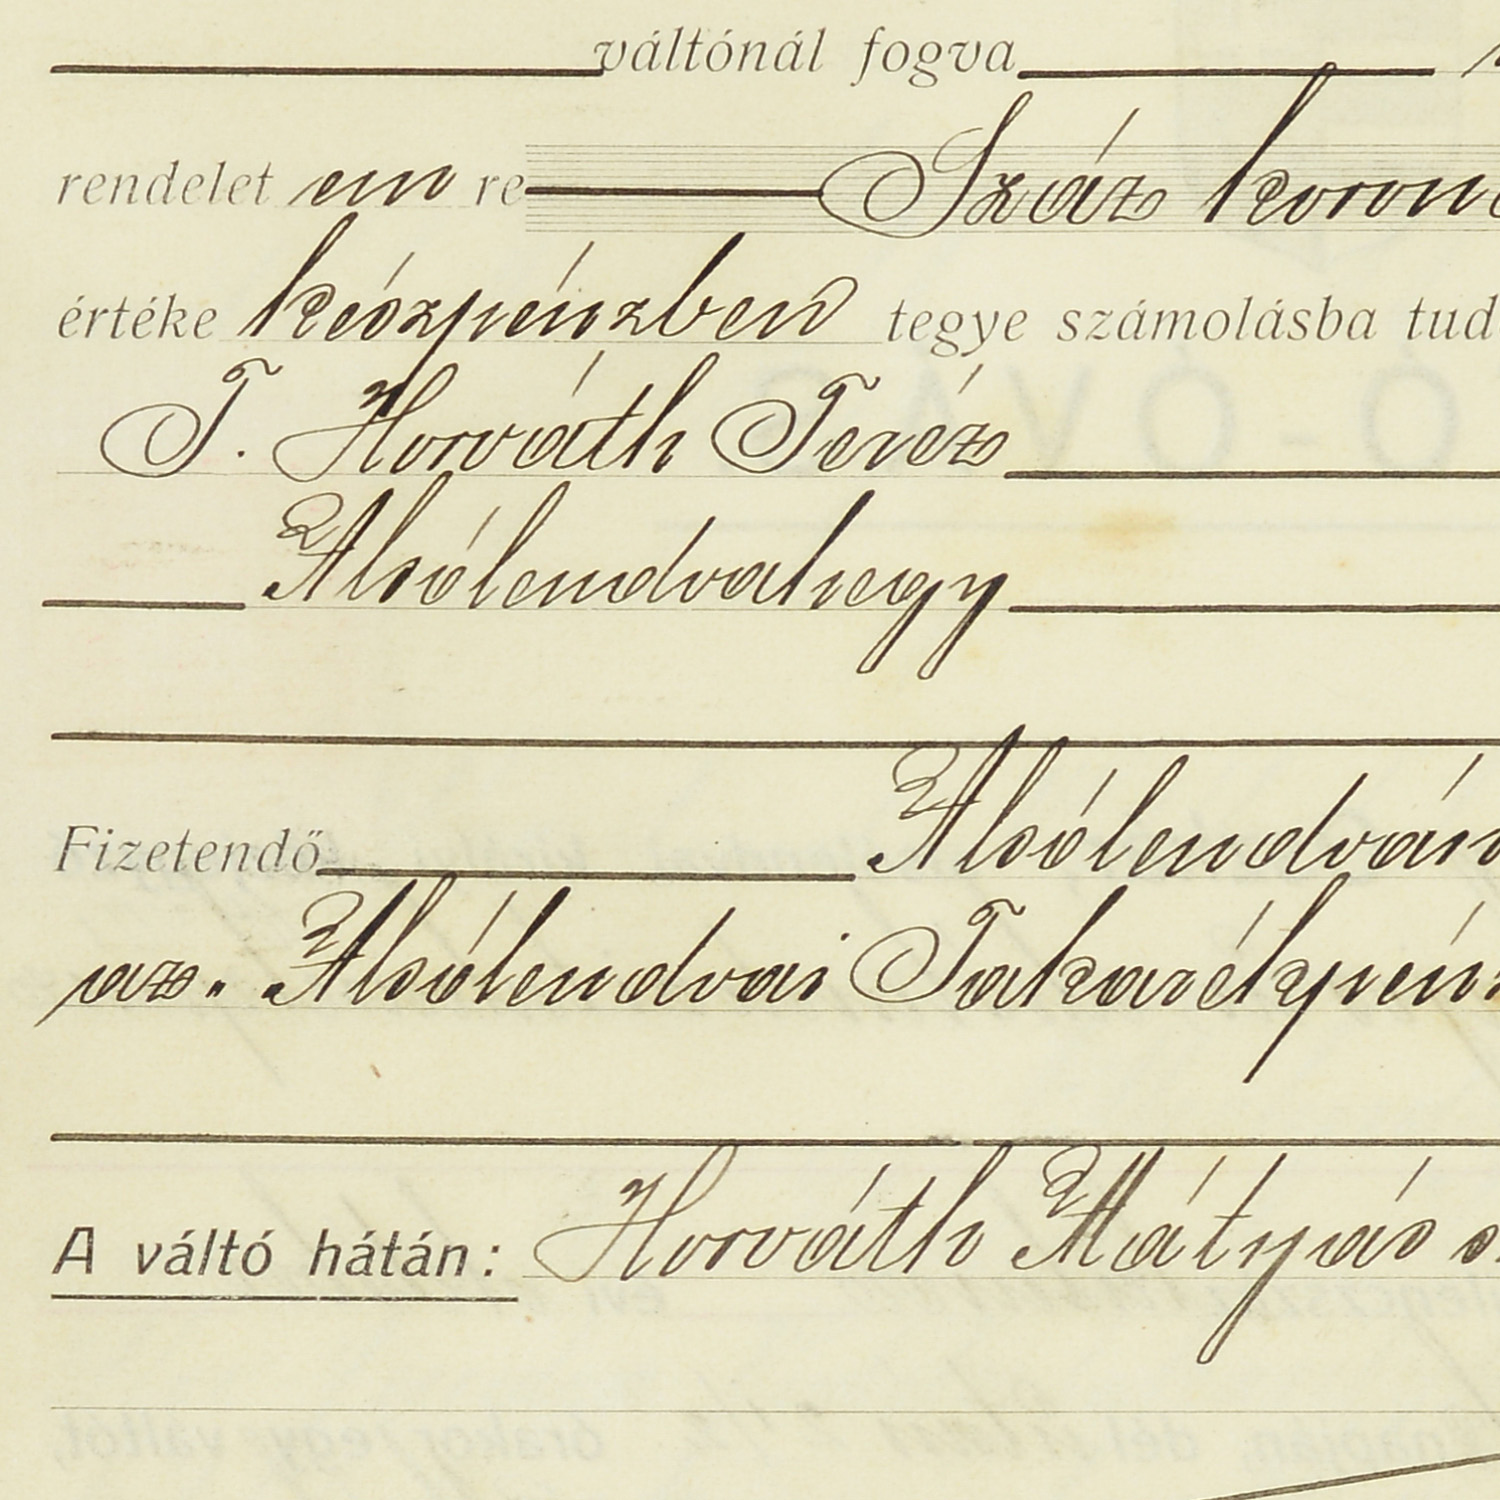 váltónál fogva
rendelet em re Száz koron
értéke készpénzben tegye számolásba tud
T. Horváth Teréz
Alsólendvahegy
Fizetendő Alsólendván
az. Alsólendvai Takarékpénz
A váltó hátán: Horváth Mátyás s